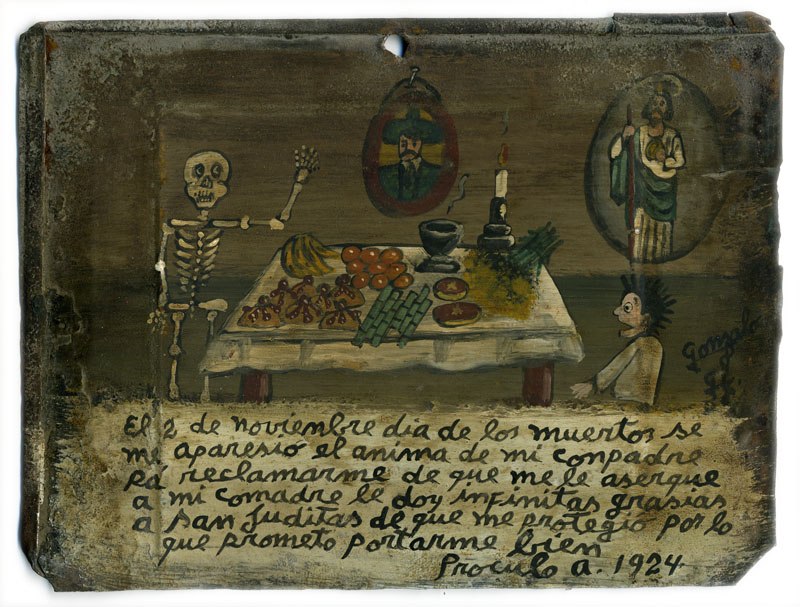 Gonzalo
El 2 de novienbre dia de los muertos se
me aparesió el anima de mi conpadre
pá reclamarme de que me le aserque
a mi comadre le doy infinitas grasias
a san Juditas de que me protegio por lo
que prometo portarme bien
Proculo a. 1924